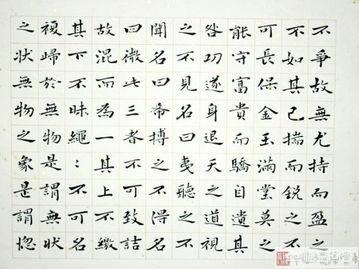 不爭故无尤持而盈之
不如其已揣而銳之不
可長保金玉滿堂莫之
能守富貴而驕自遺其
咎功遂身退天之道視
之不見名曰夷聽之不
聞名曰希搏之不得名
曰微此三者不可致詰
故混而為一其上不皦
其下不昧繩:不可名
複歸於無物是謂無狀
之狀無物之象是謂惚